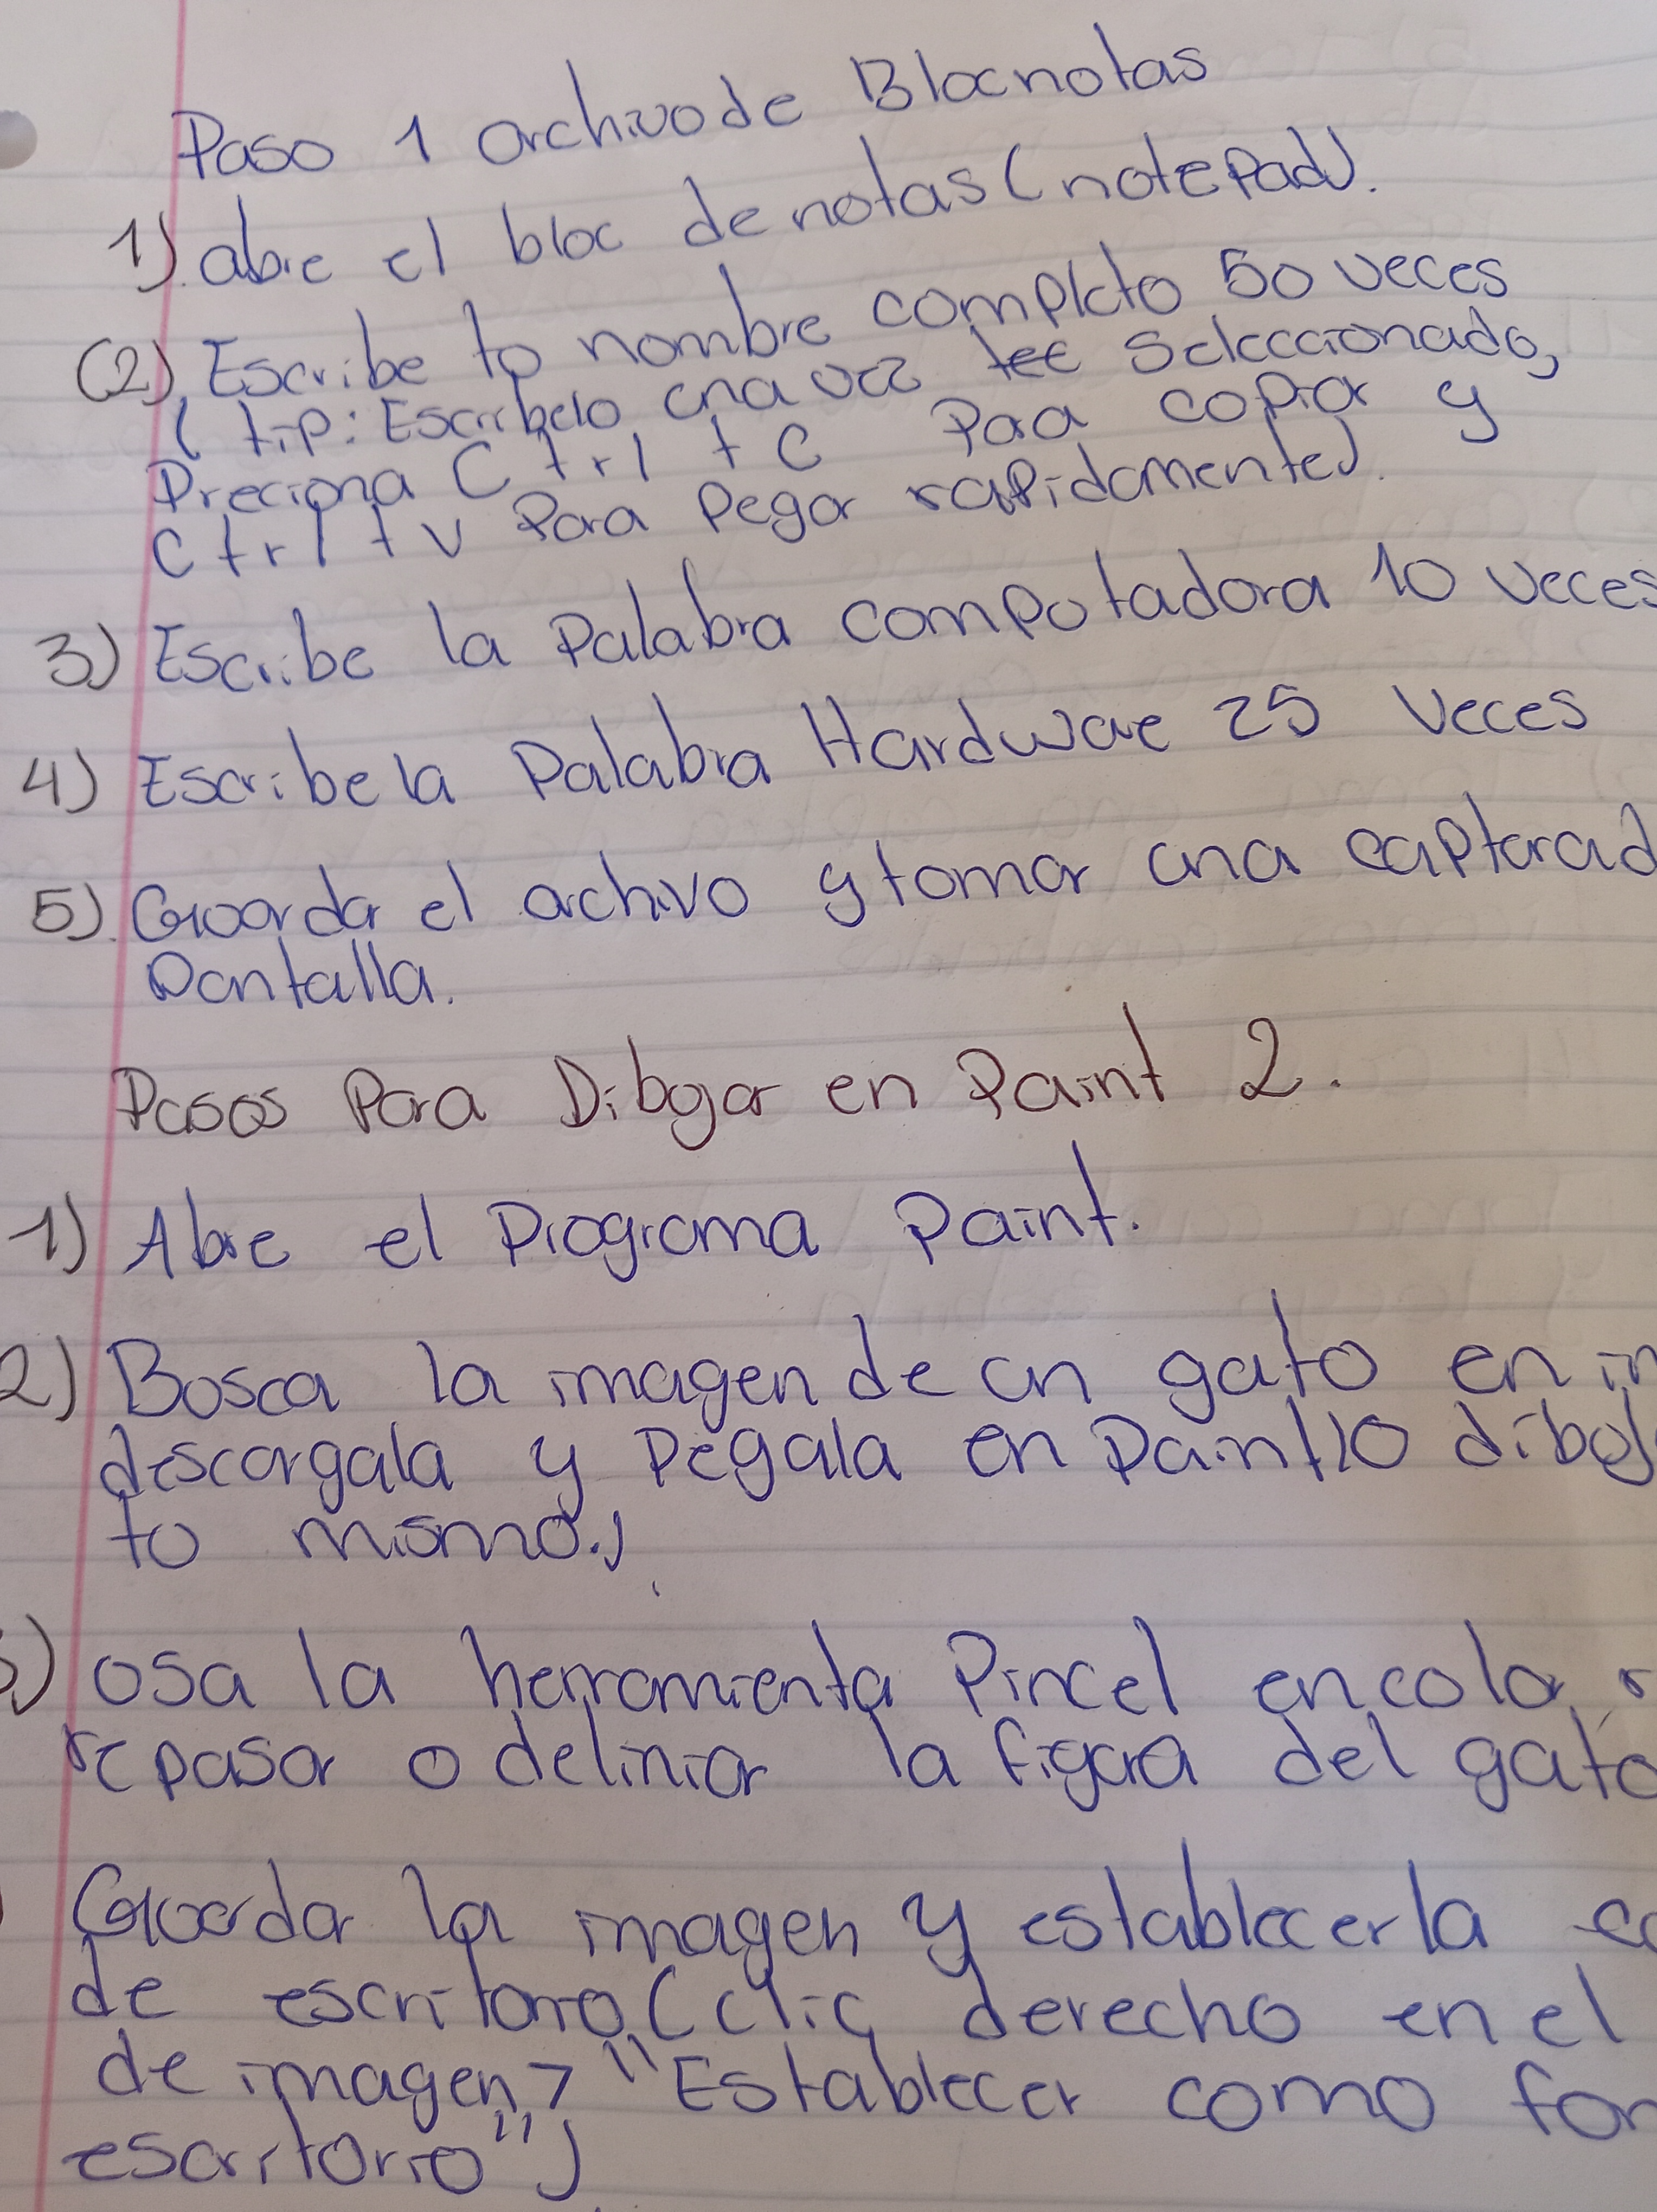 Paso 1 archivo de Blocnotas
1). abre el bloc de notas (notepad).
(2), Escribe tu nombre completo 50 veces
( tip: Escribelo una vez selcccionado,
Preciona Ctrl + C Para copiar y
Ctrl + v Para Pegar rapidamente).
3) Escribe la Palabra computadora 10 veces
4) Escribe la Palabra Hardware 25 Veces
5). Guarda el archivo y tomar una capturad
Pantalla.
Pasos Para Dibujar en Paint 2.
1) Abre el Programa Paint.
2) Busca la imagen de un gato en in
descargala y Pegala en Paint (o dibuj
to mismo.)
usa la herramienta Pincel en color
repasar o deliniar la figura del gato
Guarda la imagen y establecerla co
de escritorio, (clic derecho en el
de imagen > "Establecer como fon
escritorio")